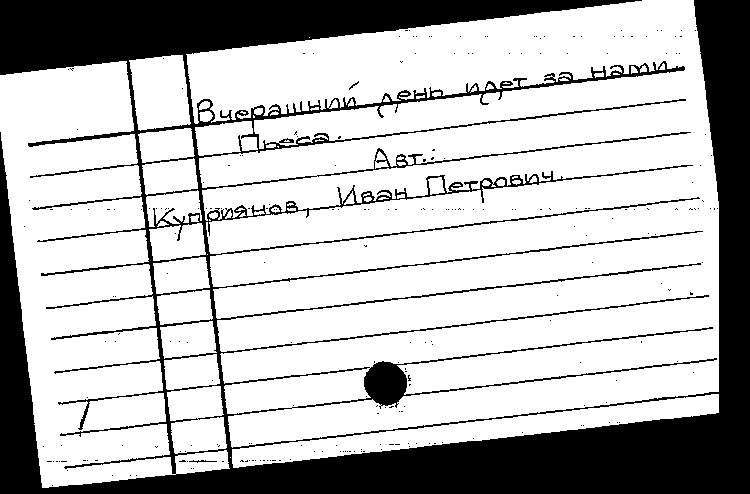 Вчерашний день идет за нами.
Пьеса.
Авт.:
Куприянов, Иван Петрович.
/